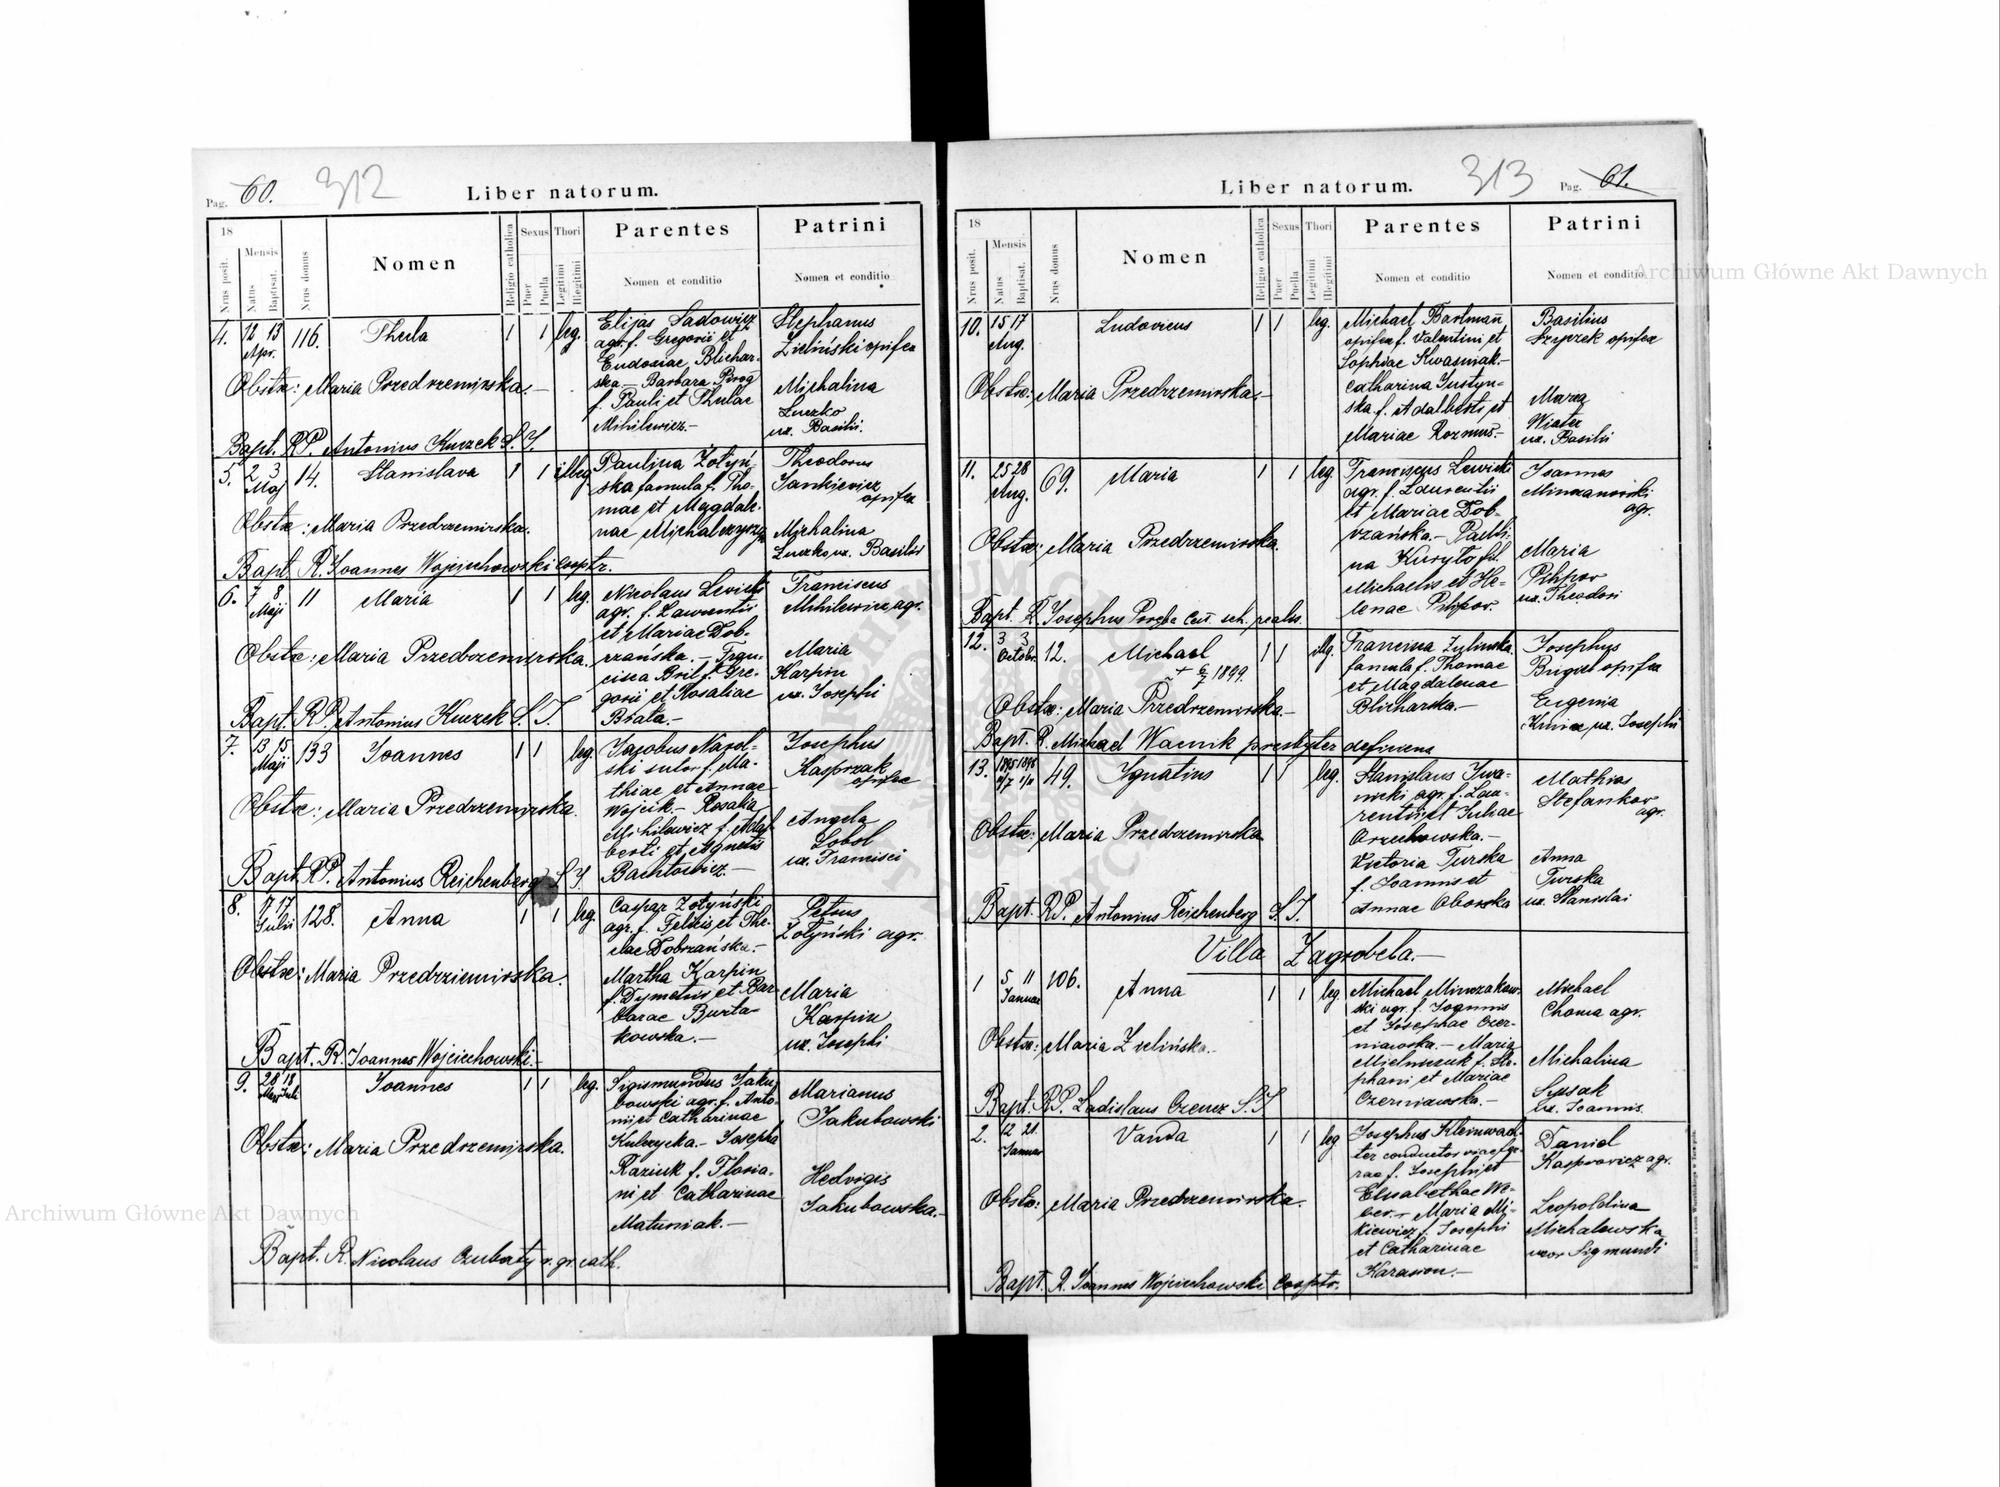 Pag. 60. 312 Liber natorum.
18
Nrus posit.
Mensis
Natus
Baptisat.
Nrus domus
Nomen
Religio catholica
Sexus
Puer
Puella
Thori
Legitimi
Illegitimi
Parentes
Nomen et conditio
Patrini
Nomen et conditio
4. 12 13 Apr. 116. Thecla 1 1 leg.
Elijas Sadowicz
agr. f. Gregorii et
Eudoxiae Blichar-
ska — Barbara Pirog
f. Pauli et Theclae
Mihilewicz.—
Stephanus
Zieliński opifex
Michalina
Luczko
ux. Basilii.
Obstx: Maria Przedrzemirska.—
Bapt. RP. Antonius Kuczek S. J.
5. 2 3 Maj 14. Stanislava 1 1 illeg
Paulina Żołyń-
ska famula f. Tho-
mae et Magdale-
nae
Theodorus
Jankiewicz
opifex
Michalina
Luczko ux. Basilii
Obstx: Maria Przedrzemirska.
Bapt. R. Joannes Wojciechowski cooptr.
6. 7 8 Maji 11 Maria 1 1 leg.
Nicolaus Levicki
agr. f. Laurentii
et Mariae Dob-
rzańska. — Fran-
cisca Bril f. Gre-
gorii et Rosaliae
Biała.—
Franciscus
Mihilewicz agr.
Maria
Karpin
ux. Josephi
Obstx: Maria Przedrzemirska.
Bapt. RP. Antonius Kuczek S. J.
7. 13 15 Maji 133 Joannes 1 1 leg.
Jacobus Narol-
ski sutor f. Ma-
thiae et Annae
Wojcik — Rosalia
Mihilewicz f. Adal-
berti et Agnetis
Bachtowicz.—
Josephus
Kasprzak
opifex
Angela
Sobol
ux. Francisci
Obstx: Maria Przedrzemirska.
Bapt. RP. Antonius Reichenberg S. J.
8. 17 17 Julii 128. Anna 1 1 leg.
Caspar Żołyński
agr. f. Felicis et The-
clae Dobrzańska.—
Martha Karpin
f. Dymetrii et Bar-
barae Burta-
kowska.—
Petrus
Żołyński agr.
Maria
Karpin
ux. Josephi
Obstx: Maria Przedrziemirska.
Bapt. R. Joannes Wojciechowski.—
9. 28 18 Juli Joannes 1 1 leg.
Sigismundus Jaku-
bowski agr. f. Anto-
nii et Catharinae
Kulczycka — Josepha
Raziuk f. Floria-
ni et Catharinae
Matuniak.—
Marianus
Jakubowski
Hedvigis
Jakubowska.—
Obstx: Maria Przedrzemirska.
Bapt. R. Nicolaus Czubaty r. gr. cath.
313 Pag. 61.
Liber natorum.
18
Nrus posit.
Mensis
Natus
Baptisat.
Nrus domus
Nomen
Religio catholica
Sexus
Puer
Puella
Thori
Legitimi
Illegitimi
Parentes
Nomen et conditio
Patrini
Nomen et conditio
10. 15 17 Aug. Ludovicus 1 1 leg.
Michael Bartmann
opifex f. Valentini et
Sophiae Kwasniak.—
Catharina Justyn-
ska f. Adalberti et
Mariae Rozmus.—
Basilius
opifex
Maria
Wiater
ux. Basilii
Obstx: Maria Przedrzemirska.—
11. 25 28 Aug. 69. Maria 1 1 leg.
Franciscus Lewicki
agr. f. Laurentii
et Mariae Dob-
rzańska — Pauli-
na Kuryło fil.
Michaelis et He-
lenae Pihpor.
Joannes
agr.
Maria
Pihpor
ux. Theodori
Obstx: Maria Przedrzemirska.
Bapt. R. Josephus Poręba Cat. sch. realis.
12. 3 3 Octobr. 12. Michael 1 1 illg.
+ 6/7 1899.
Francisca Zylinska
famula f. Thomae
et Magdalenae
Blicharska.—
Josephus
opifex
Eugenia
ux. Josephi
Obstx: Maria Przedrzemirska.—
Bapt. R. Michael Wacnik presbyter deficiens
13. 1895 1895 49. Ignatius 1 1 leg.
Stanislaus Iwa-
nicki agr. f. Lau-
rentii et Juliae
Orzechowska.—
Victoria Turska
f. Joannis et
Annae Oborska
Mathias
Stefankov
agr.
Anna
Turska
ux. Stanislai
Obstx: Maria Przedrzemirska
Bapt. RP. Antonius Reichenberg S. J.
Villa Zagrobela.—
1 5 11 Januar 106. Anna 1 1 leg.
Michael Mirczakow-
ski agr. f. Joannis
et Josephae Czer-
niawska. — Maria
Mielniczuk f. Ste-
phani et Mariae
Czerniawska.—
Michael
Choma agr.
Michalina
Sysak
ux. Joannis.
Obstx: Maria Zielińska.
Bapt. RP. Ladislaus Czencz S. J.
2. 12 21. Januar Vanda 1 1 leg
Josephus Kleinwäch-
ter conductor viae fer-
rae f. Josephi et
Elisabethae We-
ber. — Maria Mi-
kiewicz f. Josephi
et Catharinae
Karasion.—
Daniel
Kasprowicz agr.
Leopoldina
Michalewska
uxor Sigmundi
Obstx: Maria Przedrzemirska.
Bapt. R. Joannes Wojciechowski Cooptr.
Archiwum Główne Akt Dawnych
Archiwum Główne Akt Dawnych